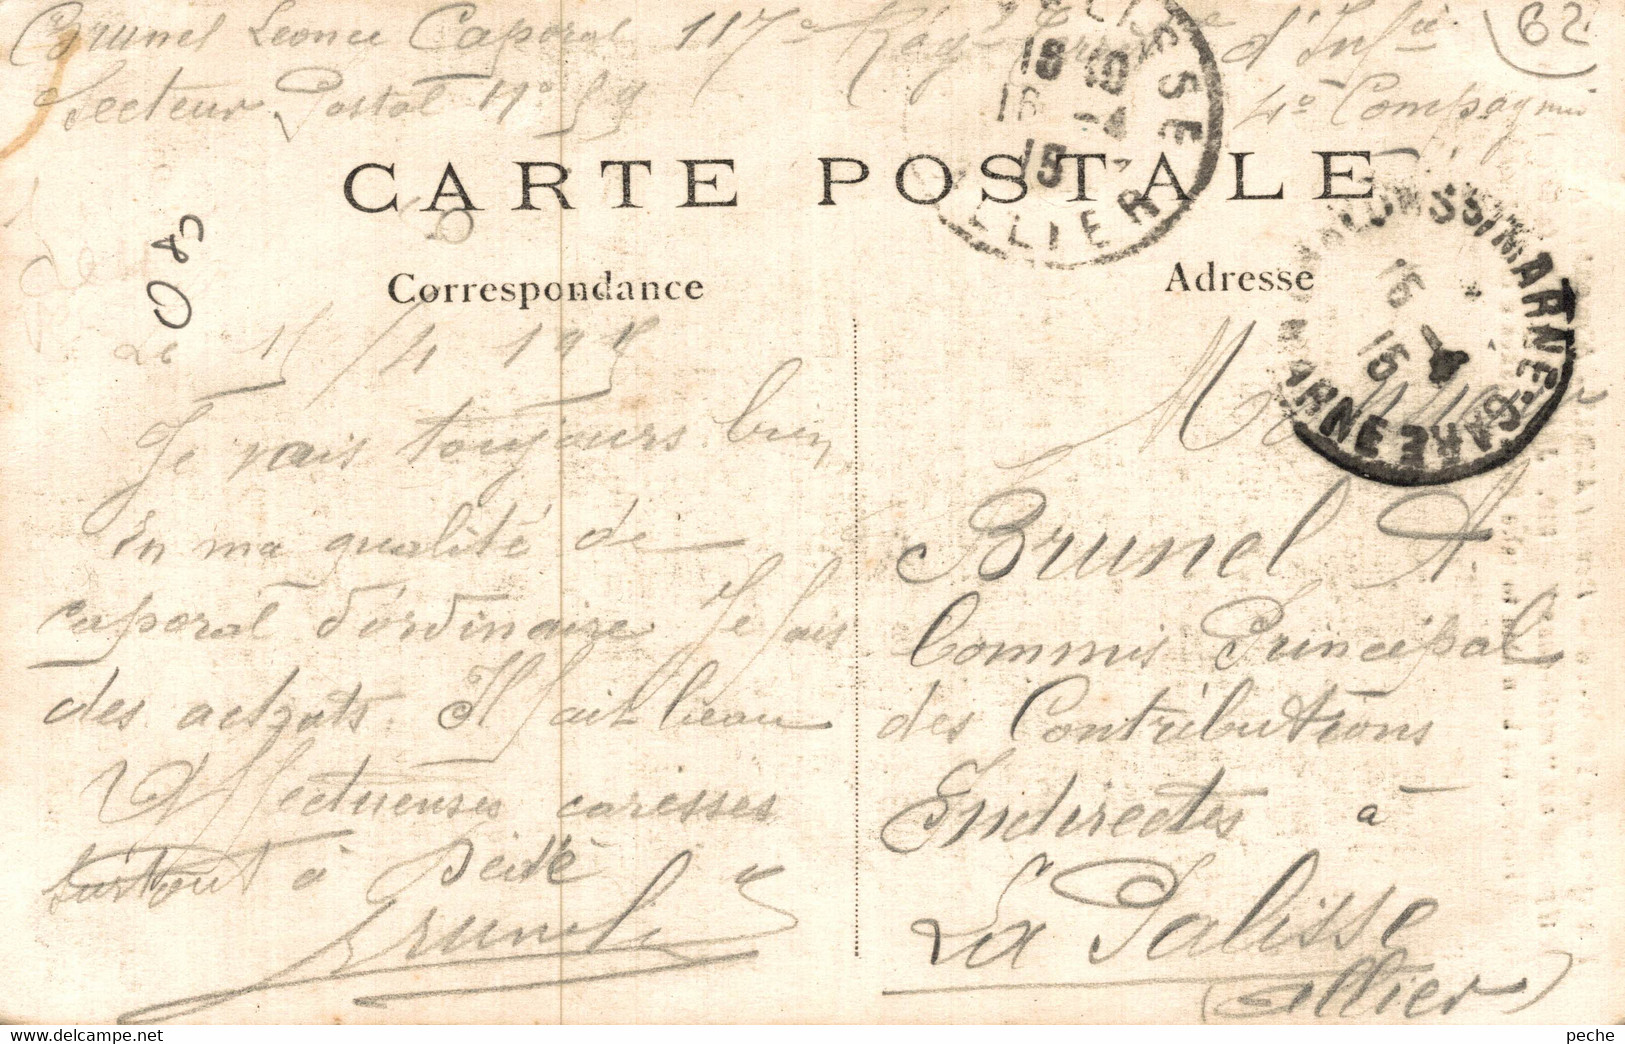 Brunel Leonce Caporal 117e Rég. d'Infie
Secteur Postal No 59
4e Compagnie
62
CARTE POSTALE
Correspondance
Adresse
08
Le 15/4 1915
Je vais toujours bien
en ma qualité de
caporal d'ordinaire je fais
des achats. Il fait beau
Affectueuses caresses
surtout à
Brunel
Brunel A.
Commis Principal
des Contributions
Indirectes à
La Palisse
(Allier)
18 10
16 -4
15
ALLIER
S/MARNE-GARE
MARNE
16
15
peche